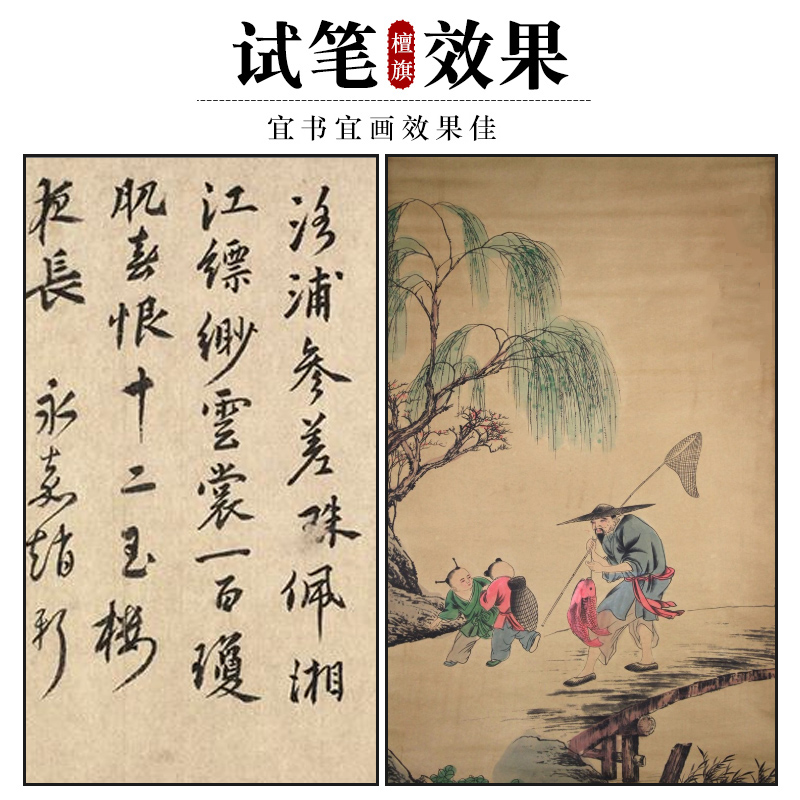 试笔檀旗效果
宜书宜画效果佳
洛浦參差珠佩湘
江縹緲雲裳一百瓊
肌春恨十二玉樓
夜長 永嘉趙